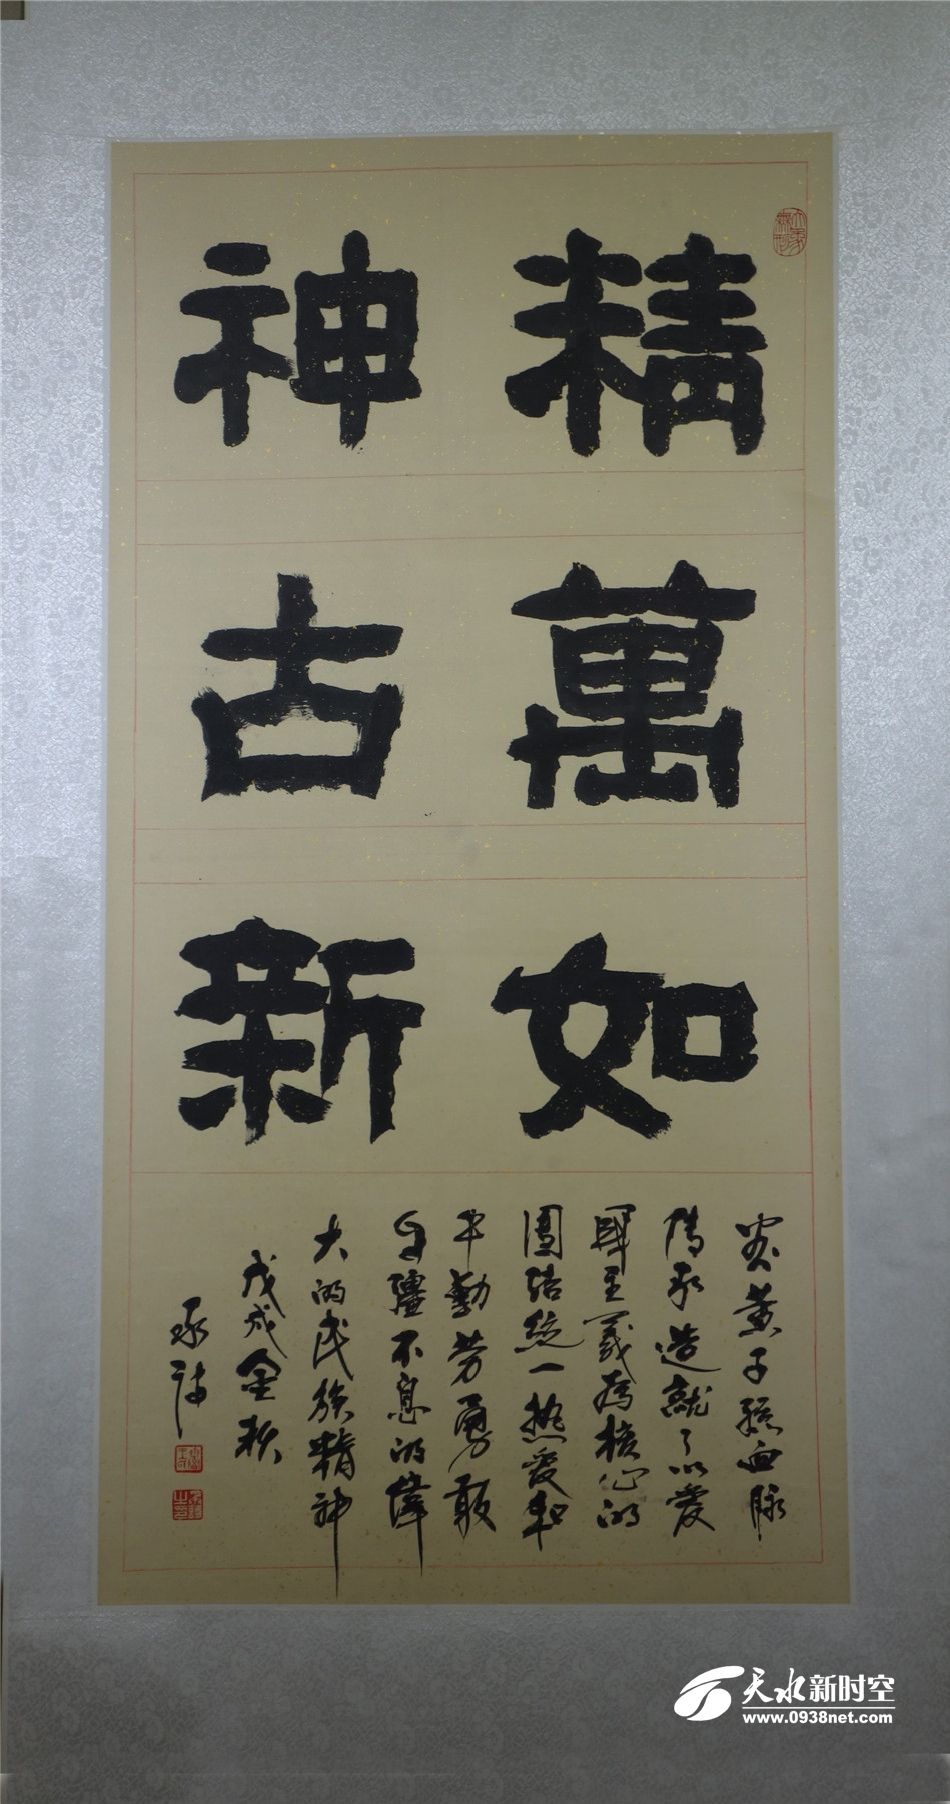 精神
萬古
如新
炎黃子孫血脉
傳承造就了以愛
國主義為核心的
團結統一熱愛和
平勤勞勇敢
自彊不息的偉
大的民族精神
戊戌金秋
天水新时空
www.0938net.com